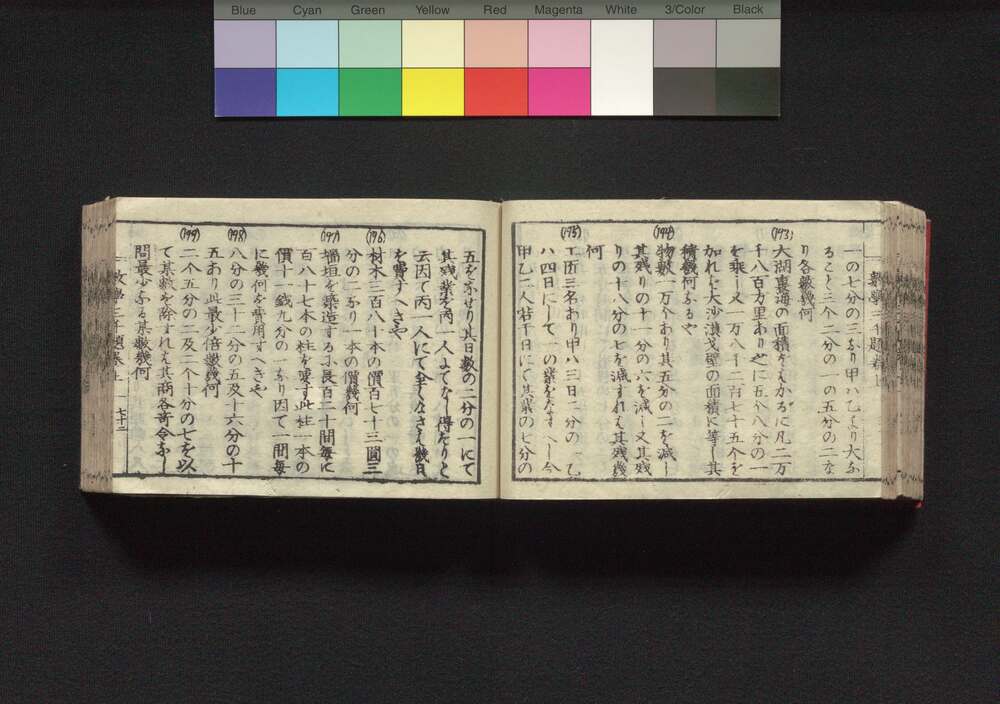 Blue Cyan Green Yellow Red Magenta White 3/Color Black
一の七分の三なり甲ハ乙より大な
ること三个二分の一の五分の二な
り各數幾何
(193)
大湖裏海の面積をはかるに凡二万
千八百方里あり之に五个八分の一
を乘し又一万八千二百七十五个を
加れは大沙漠戈壁の面積に等し其
積幾何なるや
(194)
物數一万个あり其五分の二を減し
其殘りの十一分の六を減し又其殘
りの十八分の七を減すれは其殘幾
何
(195)
工匠三名あり甲ハ三日二分の一乙
ハ四日にして一の業をなすへし今
甲乙二人若干日にて其業の七分の
五を示せり其日數の二分の一にて
其殘業を丙一人よてなし得たりと
云因て丙一人にて全くなさは幾日
を費すへきや
(196)
材木三百八十本の價百七十三圓三
分の二なり一本の價幾何
(197)
墻垣を築造するに長百二十間毎に
百八十七本の柱を要す此柱一本の
價十一錢九分の一なり因て一間毎
に幾何を費用すへきや
(198)
八分の三十二分の五及十六分の十
五あり此最少倍數幾何
(199)
二个五分の二及二个十分の七を以
て某數を除すれは其商各奇令なし
問最少なる某數幾何
七十二